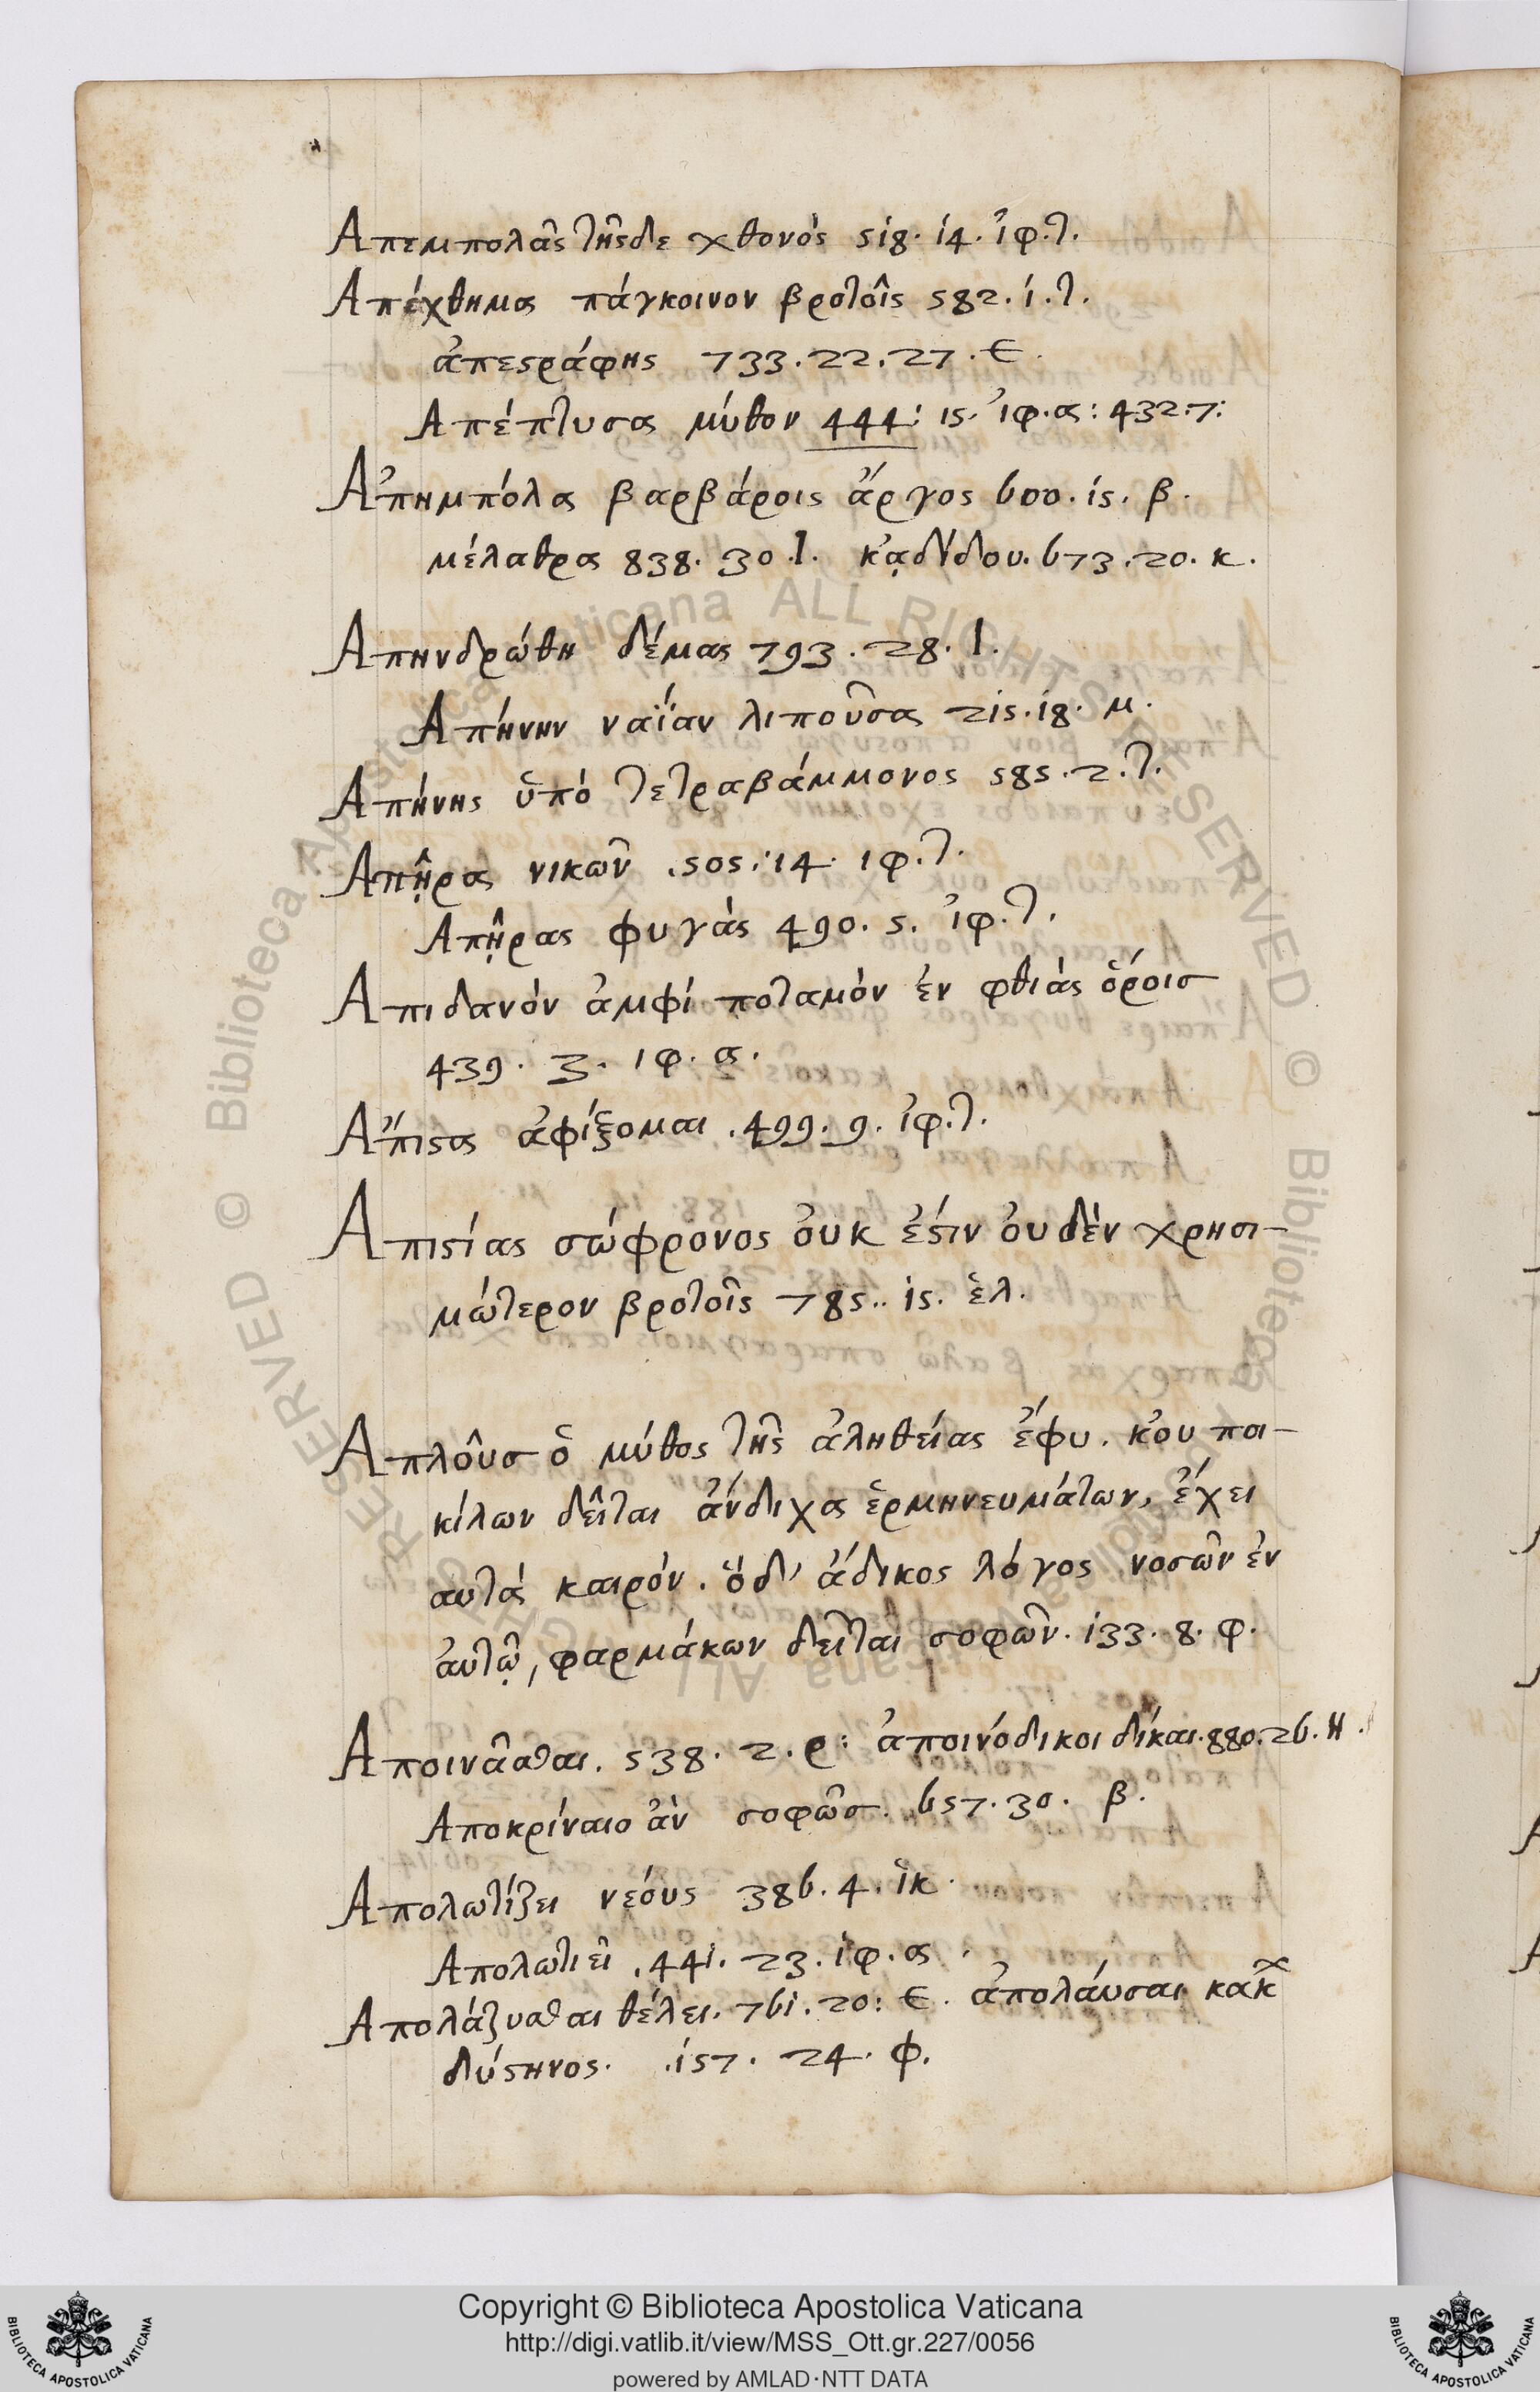 Απεμπολᾶς τῆσδε χθονὸς 518. 14. ἰφ.τ.
Απέχθημα πάγκοινον βροτοῖς 582. 1. τ.
ἀπεςράφης 733. 22. 27. ε.
Απέπτυσα μύθον 444: 15. ἰφ.α: 432:7:
Ἀπημπόλα βαρβάροις ἄργος 600. 15. β.
μέλαθρα 838. 30. Ι. κᾀδίδου. 673. 20. κ.
Απηνδρώθη δέμας 793. 28. Ι.
Απήνην ναΐαν λιποῦσα 215. 18. μ.
Απήνης ὑπὸ τετραβάμμονος 585. 2. τ.
Απῆρα νικῶν . 505. 14. ιφ.τ.
Απῆρας φυγὰς 490. 5. ἰφ.τ.
Απιδανὸν ἀμφὶ ποταμὸν ἐν φθιὰς ὅροισ
439. 3. ιφ. α.
Ἄπιςα ἀφίξομαι . 499. 9. ἰφ.τ.
Απιςίας σώφρονος ὀυκ ἐςὶν ὀυδὲν χρησι-
μώτερον βροτοῖς 785.. 15. ἑλ.
Απλοῦσ ὁ μύθος τῆς ἀληθείας ἔφυ. κὀυ ποι-
κίλων δεῖται ἄνδιχα ἑρμηνευμάτων, ἔχει
αυτὰ καιρόν. ὁ δ' ἄδικος λόγος νοσῶν ἐν
ἀυτῷ, φαρμάκων δεῖται σοφῶν. 133. 8. φ.
Αποινᾶσθαι. 538. 2. ρ: ἀποινόδικοι δίκαι. 880. 26. Η.
Αποκρίναιο ἂν σοφῶσ. 657. 30. β.
Απολωτίζει νέους 386. 4. ἱκ.
Απολωτιεῖ . 441. 23. ἰφ. α.
Απολάζυσθαι θέλει. 761. 20: ε. ἀπολάυσαι κακ
δύςηνος. .157. 24. φ.
© Biblioteca Apostolica Vaticana ALL RIGHTS RESERVED
Copyright © Biblioteca Apostolica Vaticana
http://digi.vatlib.it/view/MSS_Ott.gr.227/0056
powered by AMLAD·NTT DATA
BIBLIOTECA APOSTOLICA VATICANA
BIBLIOTECA APOSTOLICA VATICANA